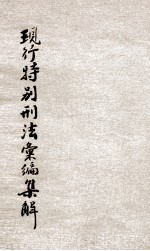 現行特別刑法彙編集解